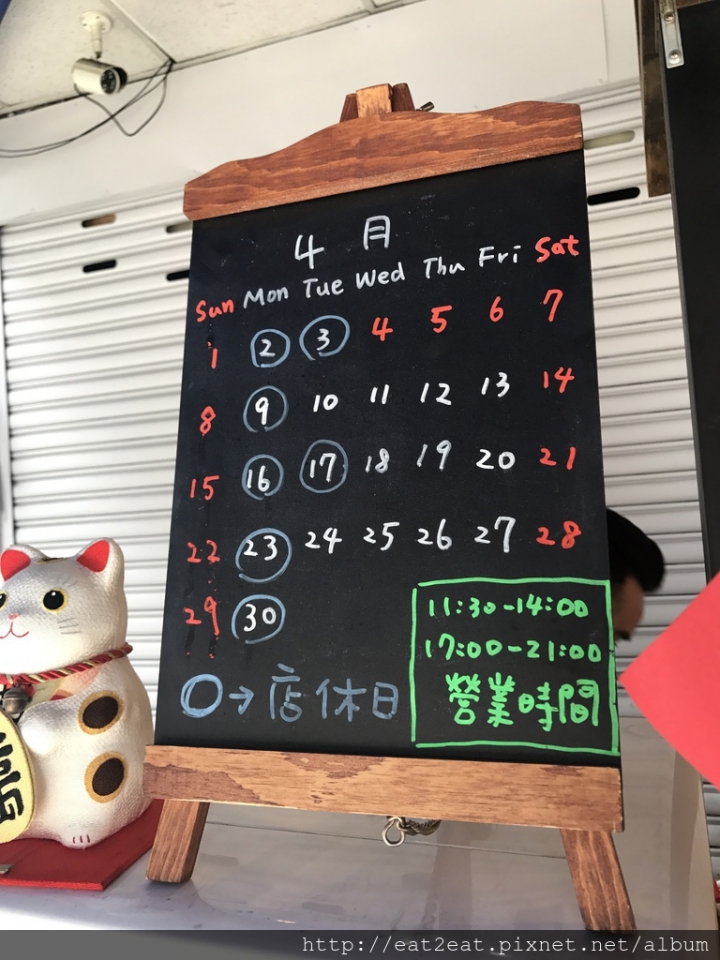 4月
Sun Mon Tue Wed Thu Fri Sat
1 2 3 4 5 6 7
8 9 10 11 12 13 14
15 16 17 18 19 20 21
22 23 24 25 26 27 28
29 30
11:30-14:00
17:00-21:00
營業時間
○→店休日
http://eat2eat.pixnet.net/album